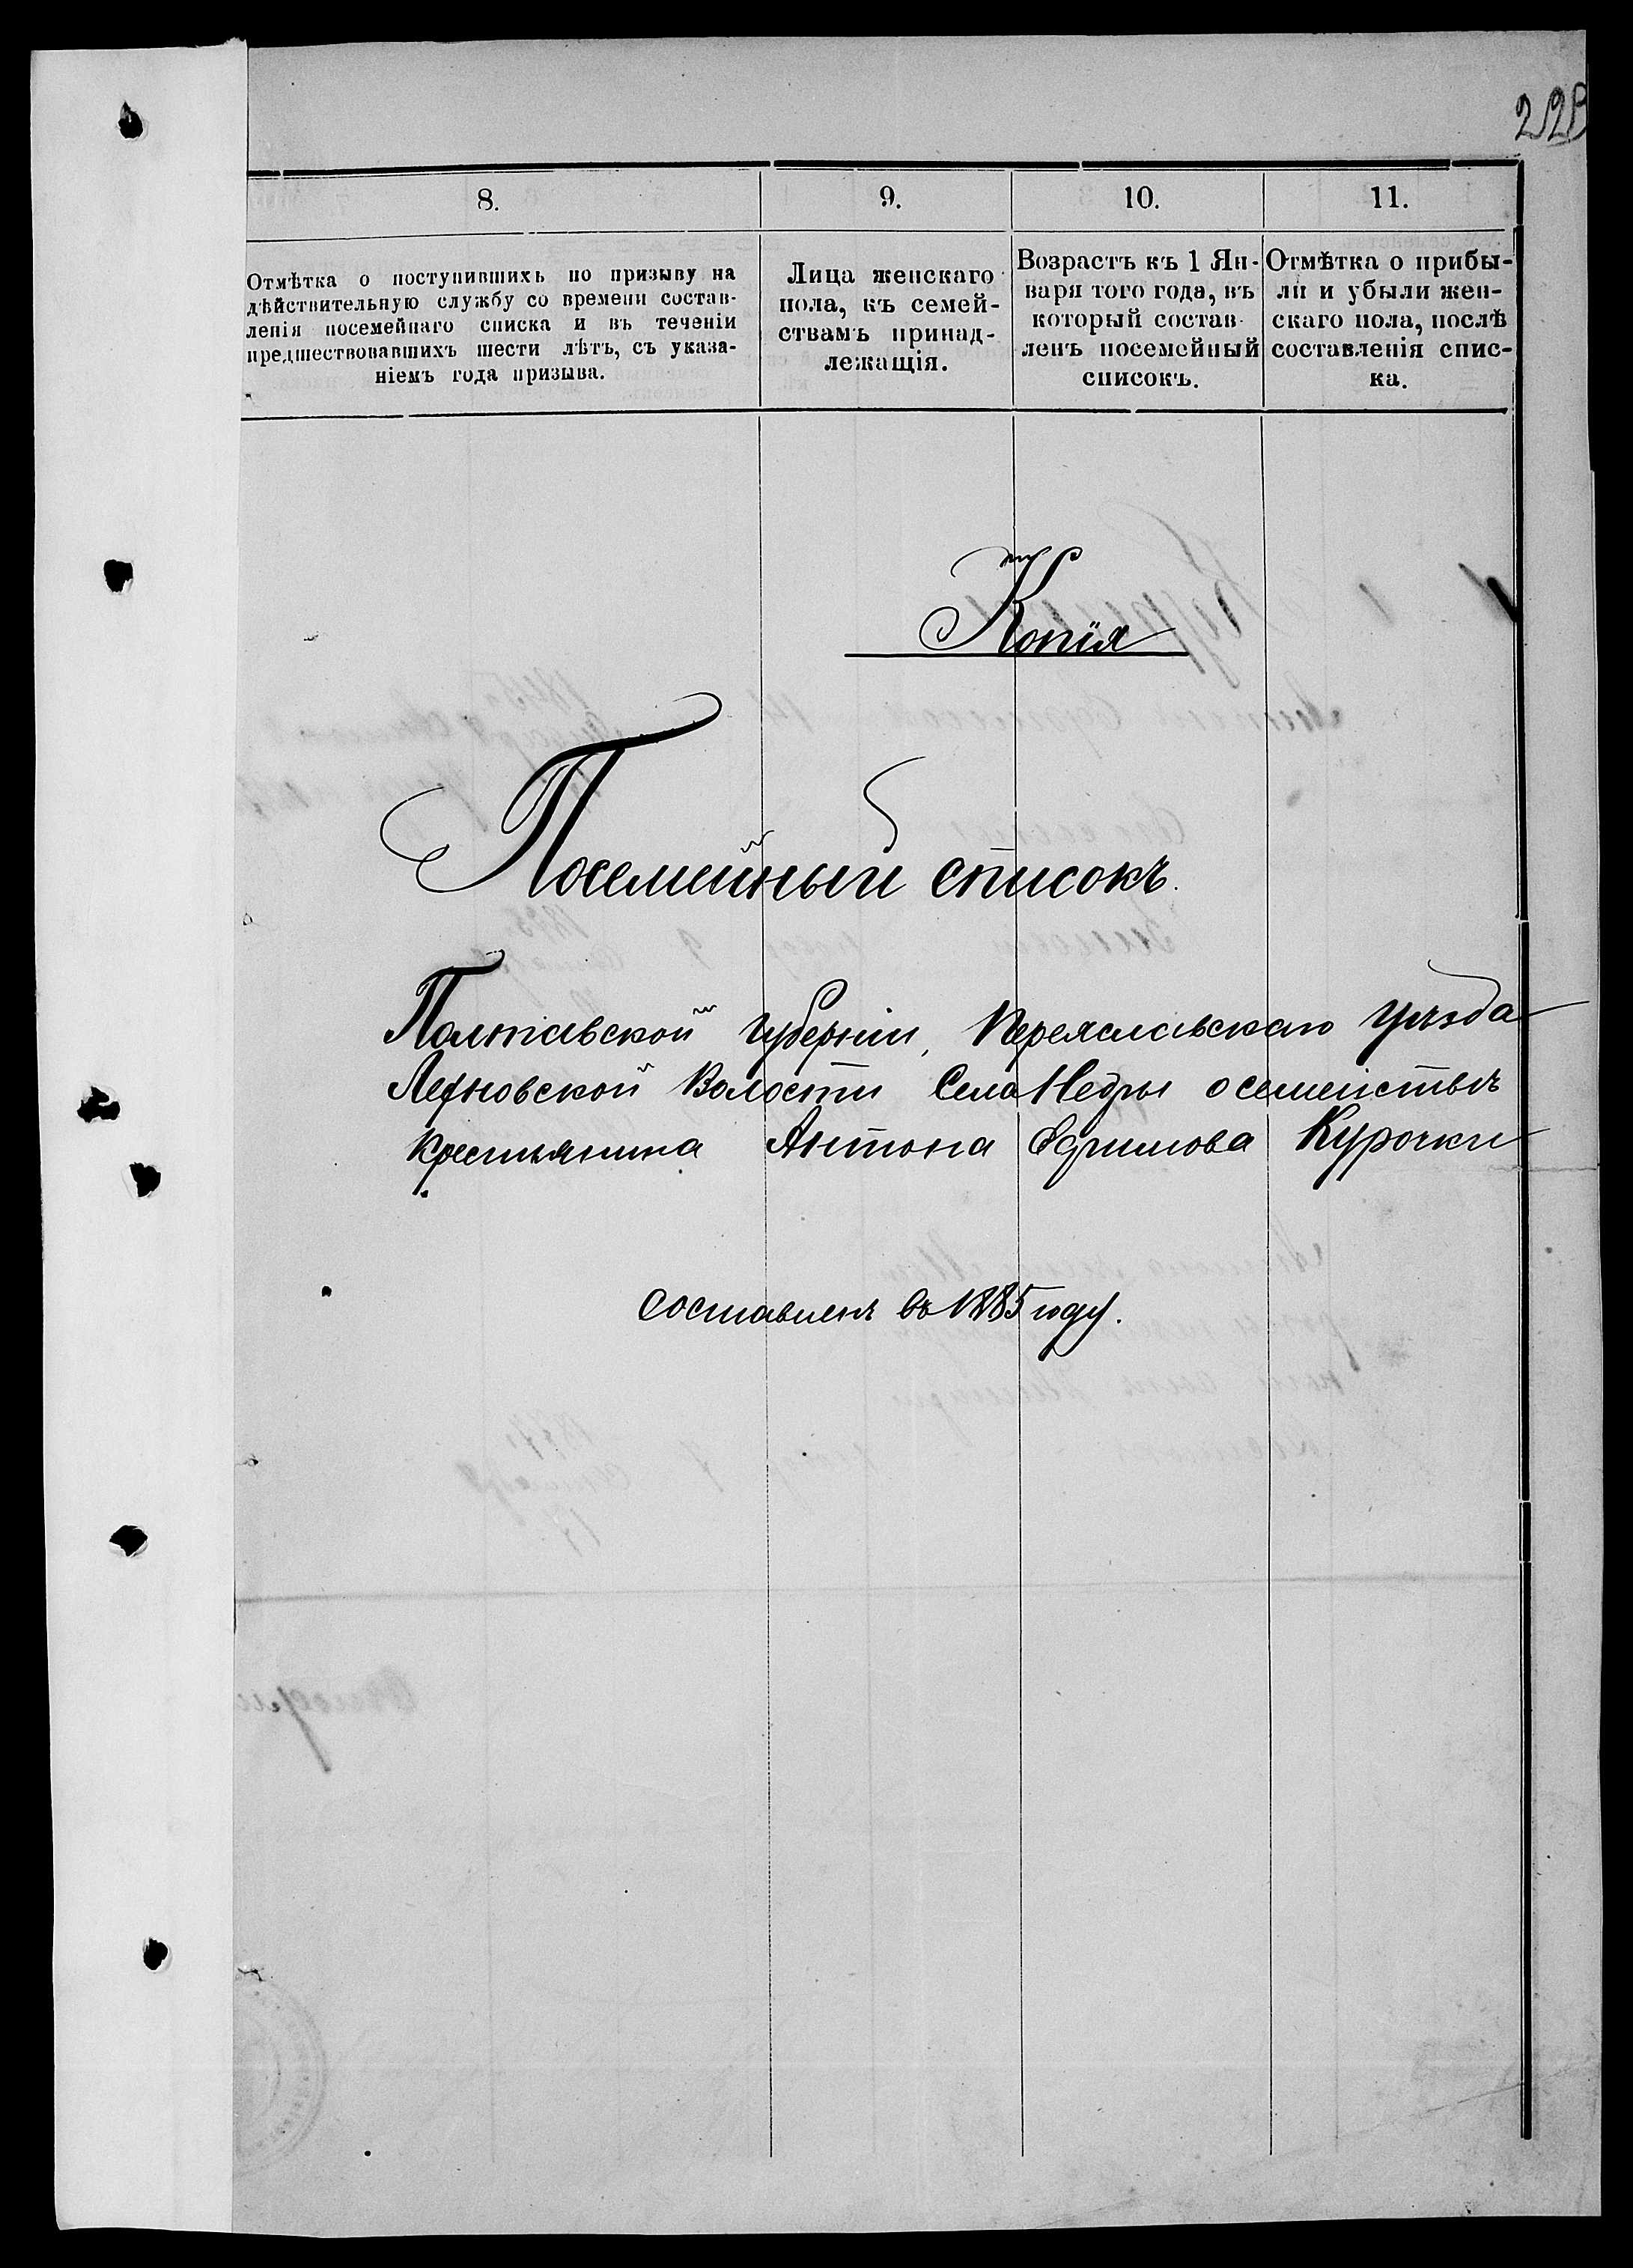 8.
9.
10.
11.
Отмѣтка о поступившихъ по призыву на
дѣйствительную службу со времени состав-
ленія посемейнаго списка и въ теченіи
предшествовавшихъ шести лѣтъ, съ указа-
ніемъ года призыва.
Лица женскаго
пола, къ семей-
ствамъ принад-
лежащія.
Возрастъ къ 1 Ян-
варя того года, въ
который состав-
ленъ посемейный
списокъ.
Отмѣтка о прибы-
ли и убыли жен-
скаго пола, послѣ
составленія спис-
ка.
Копія
Посемейный списокъ.
Полтавской губерніи, Переяславскаго уѣзда
Волости Села Недры о семействѣ
крестьянина Антона Ефимова Курочки
составленъ въ 1885 году.